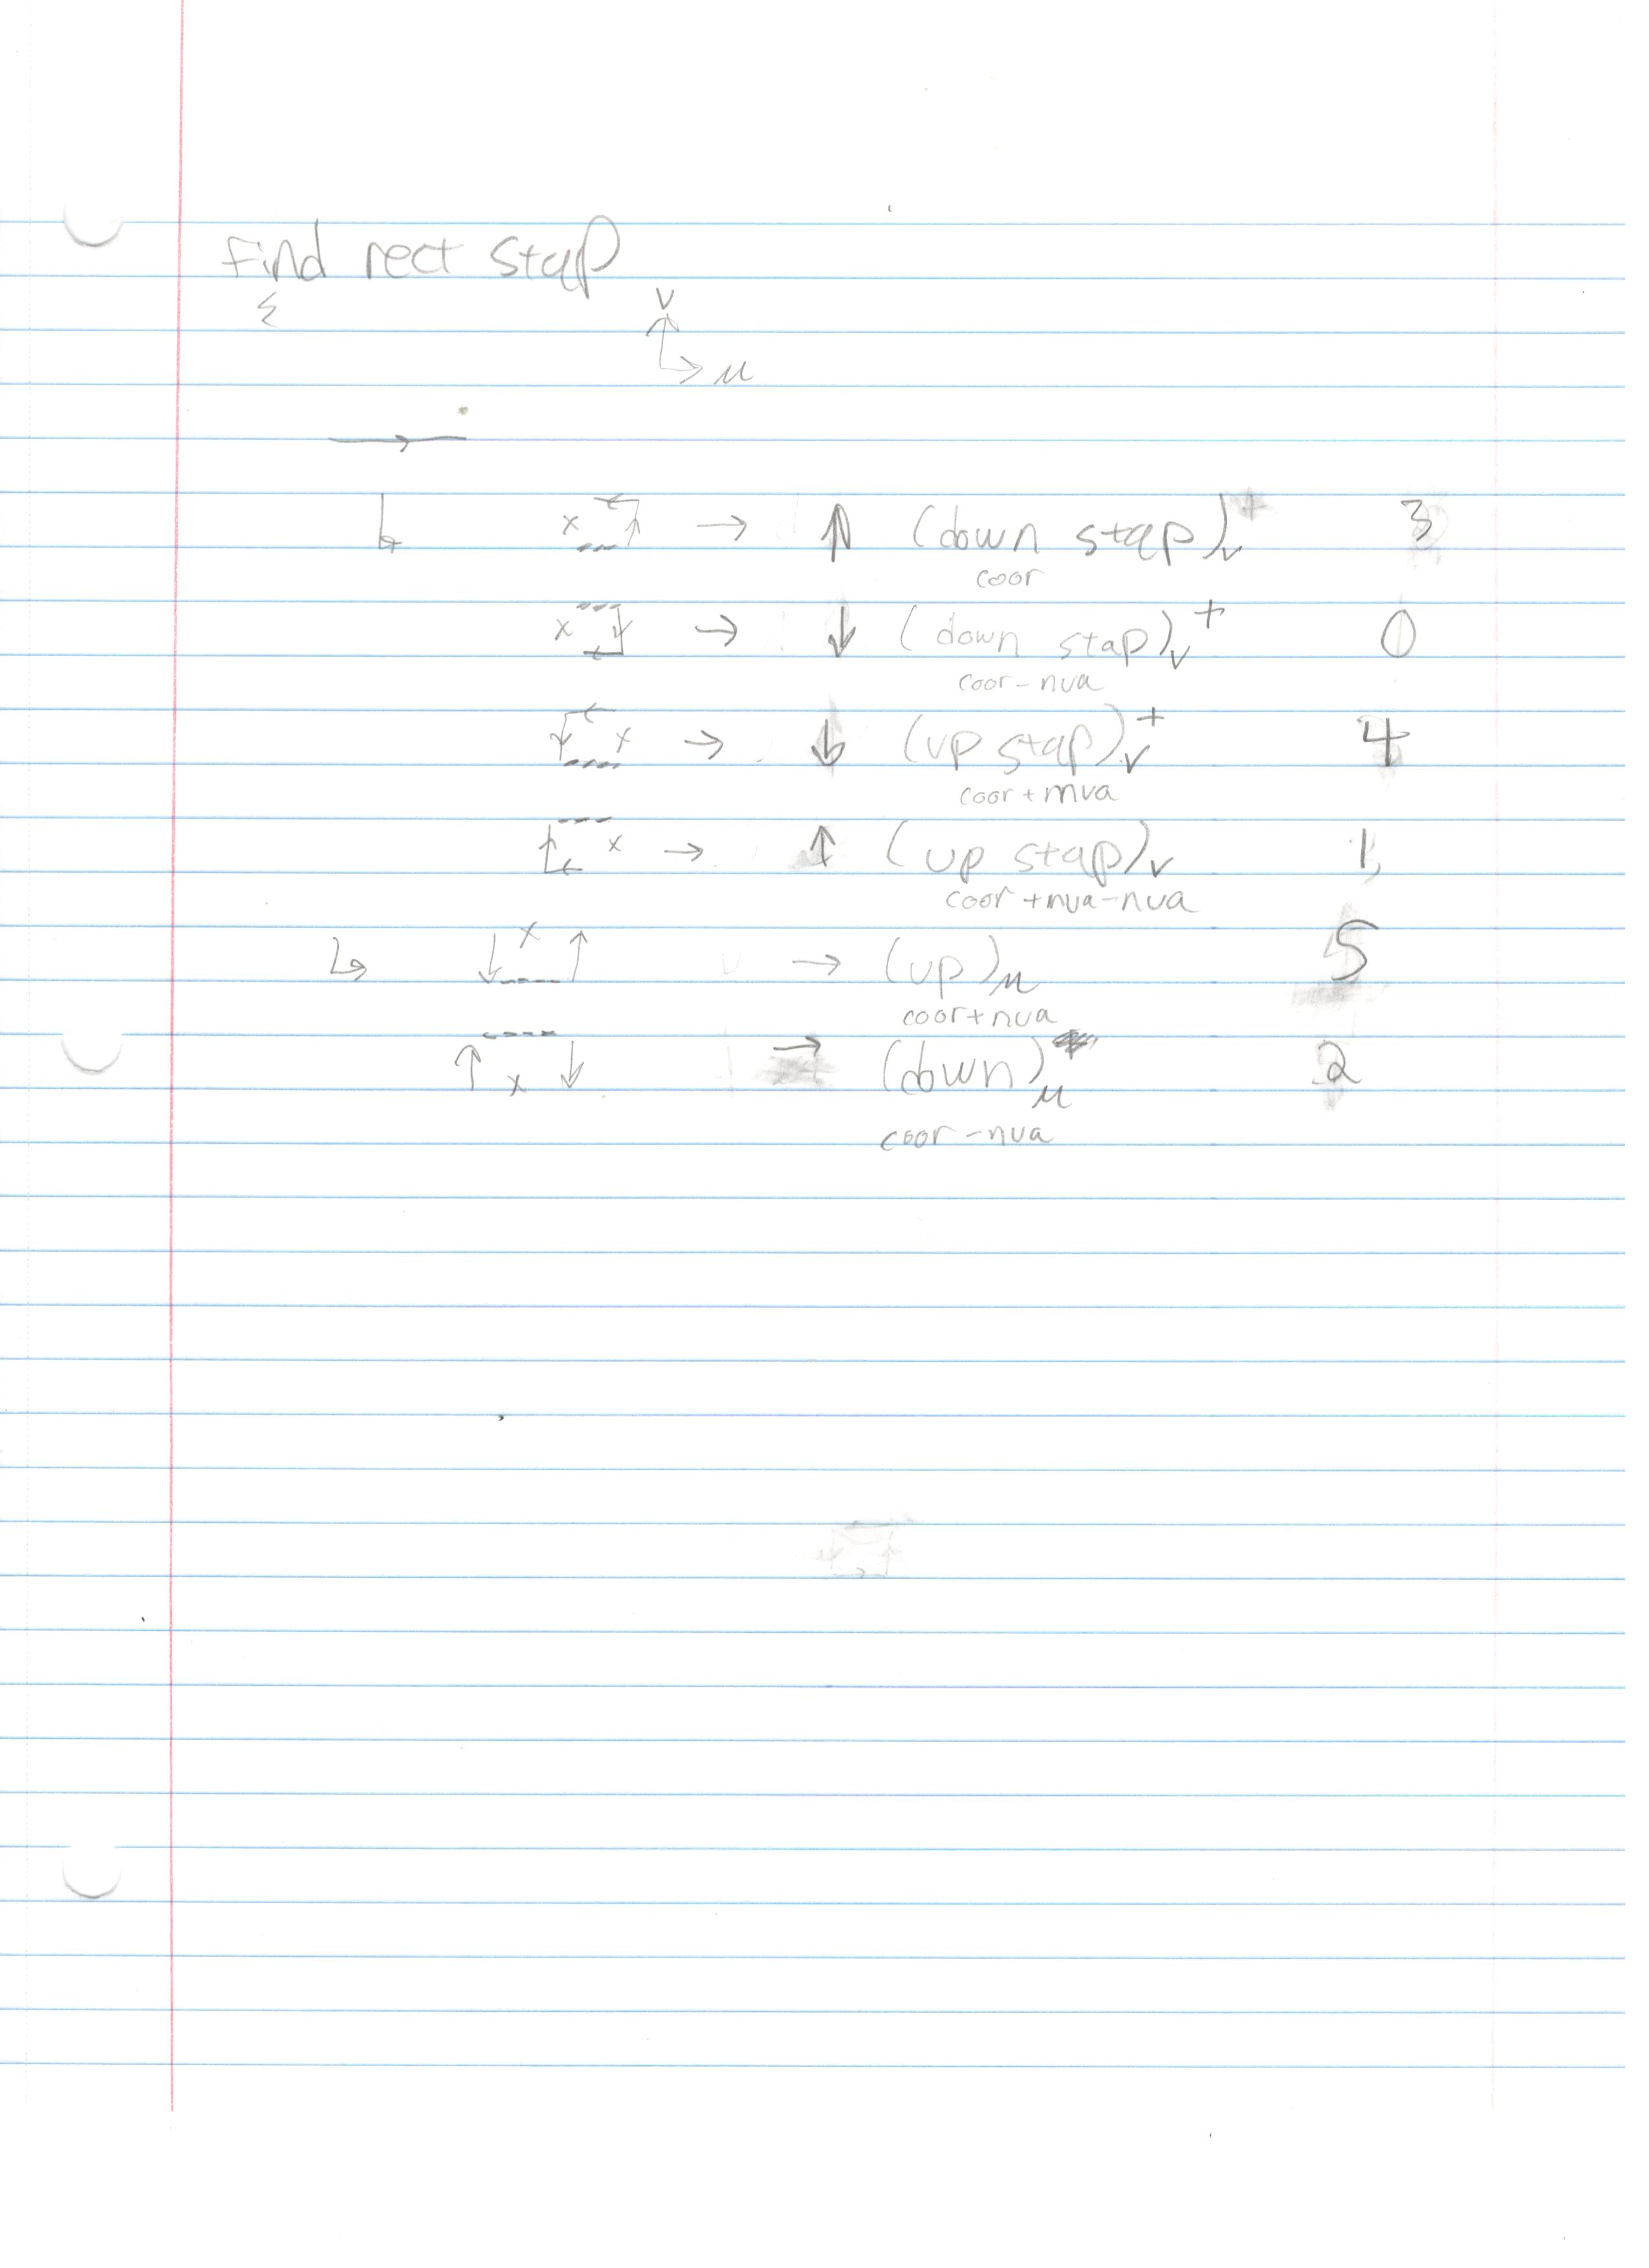 find rect stap
{
ν
μ
x → ↑ (down stap)ν+ 3
coor
x → ↓ (down stap)ν+ 0
coor-nua
x → ↓ (up stap)ν+ 4
coor+mua
x → ↑ (up stap)ν 1
coor+nua-nua
x → (up)μ 5
coor+nua
x → (down)μ 2
coor-nua